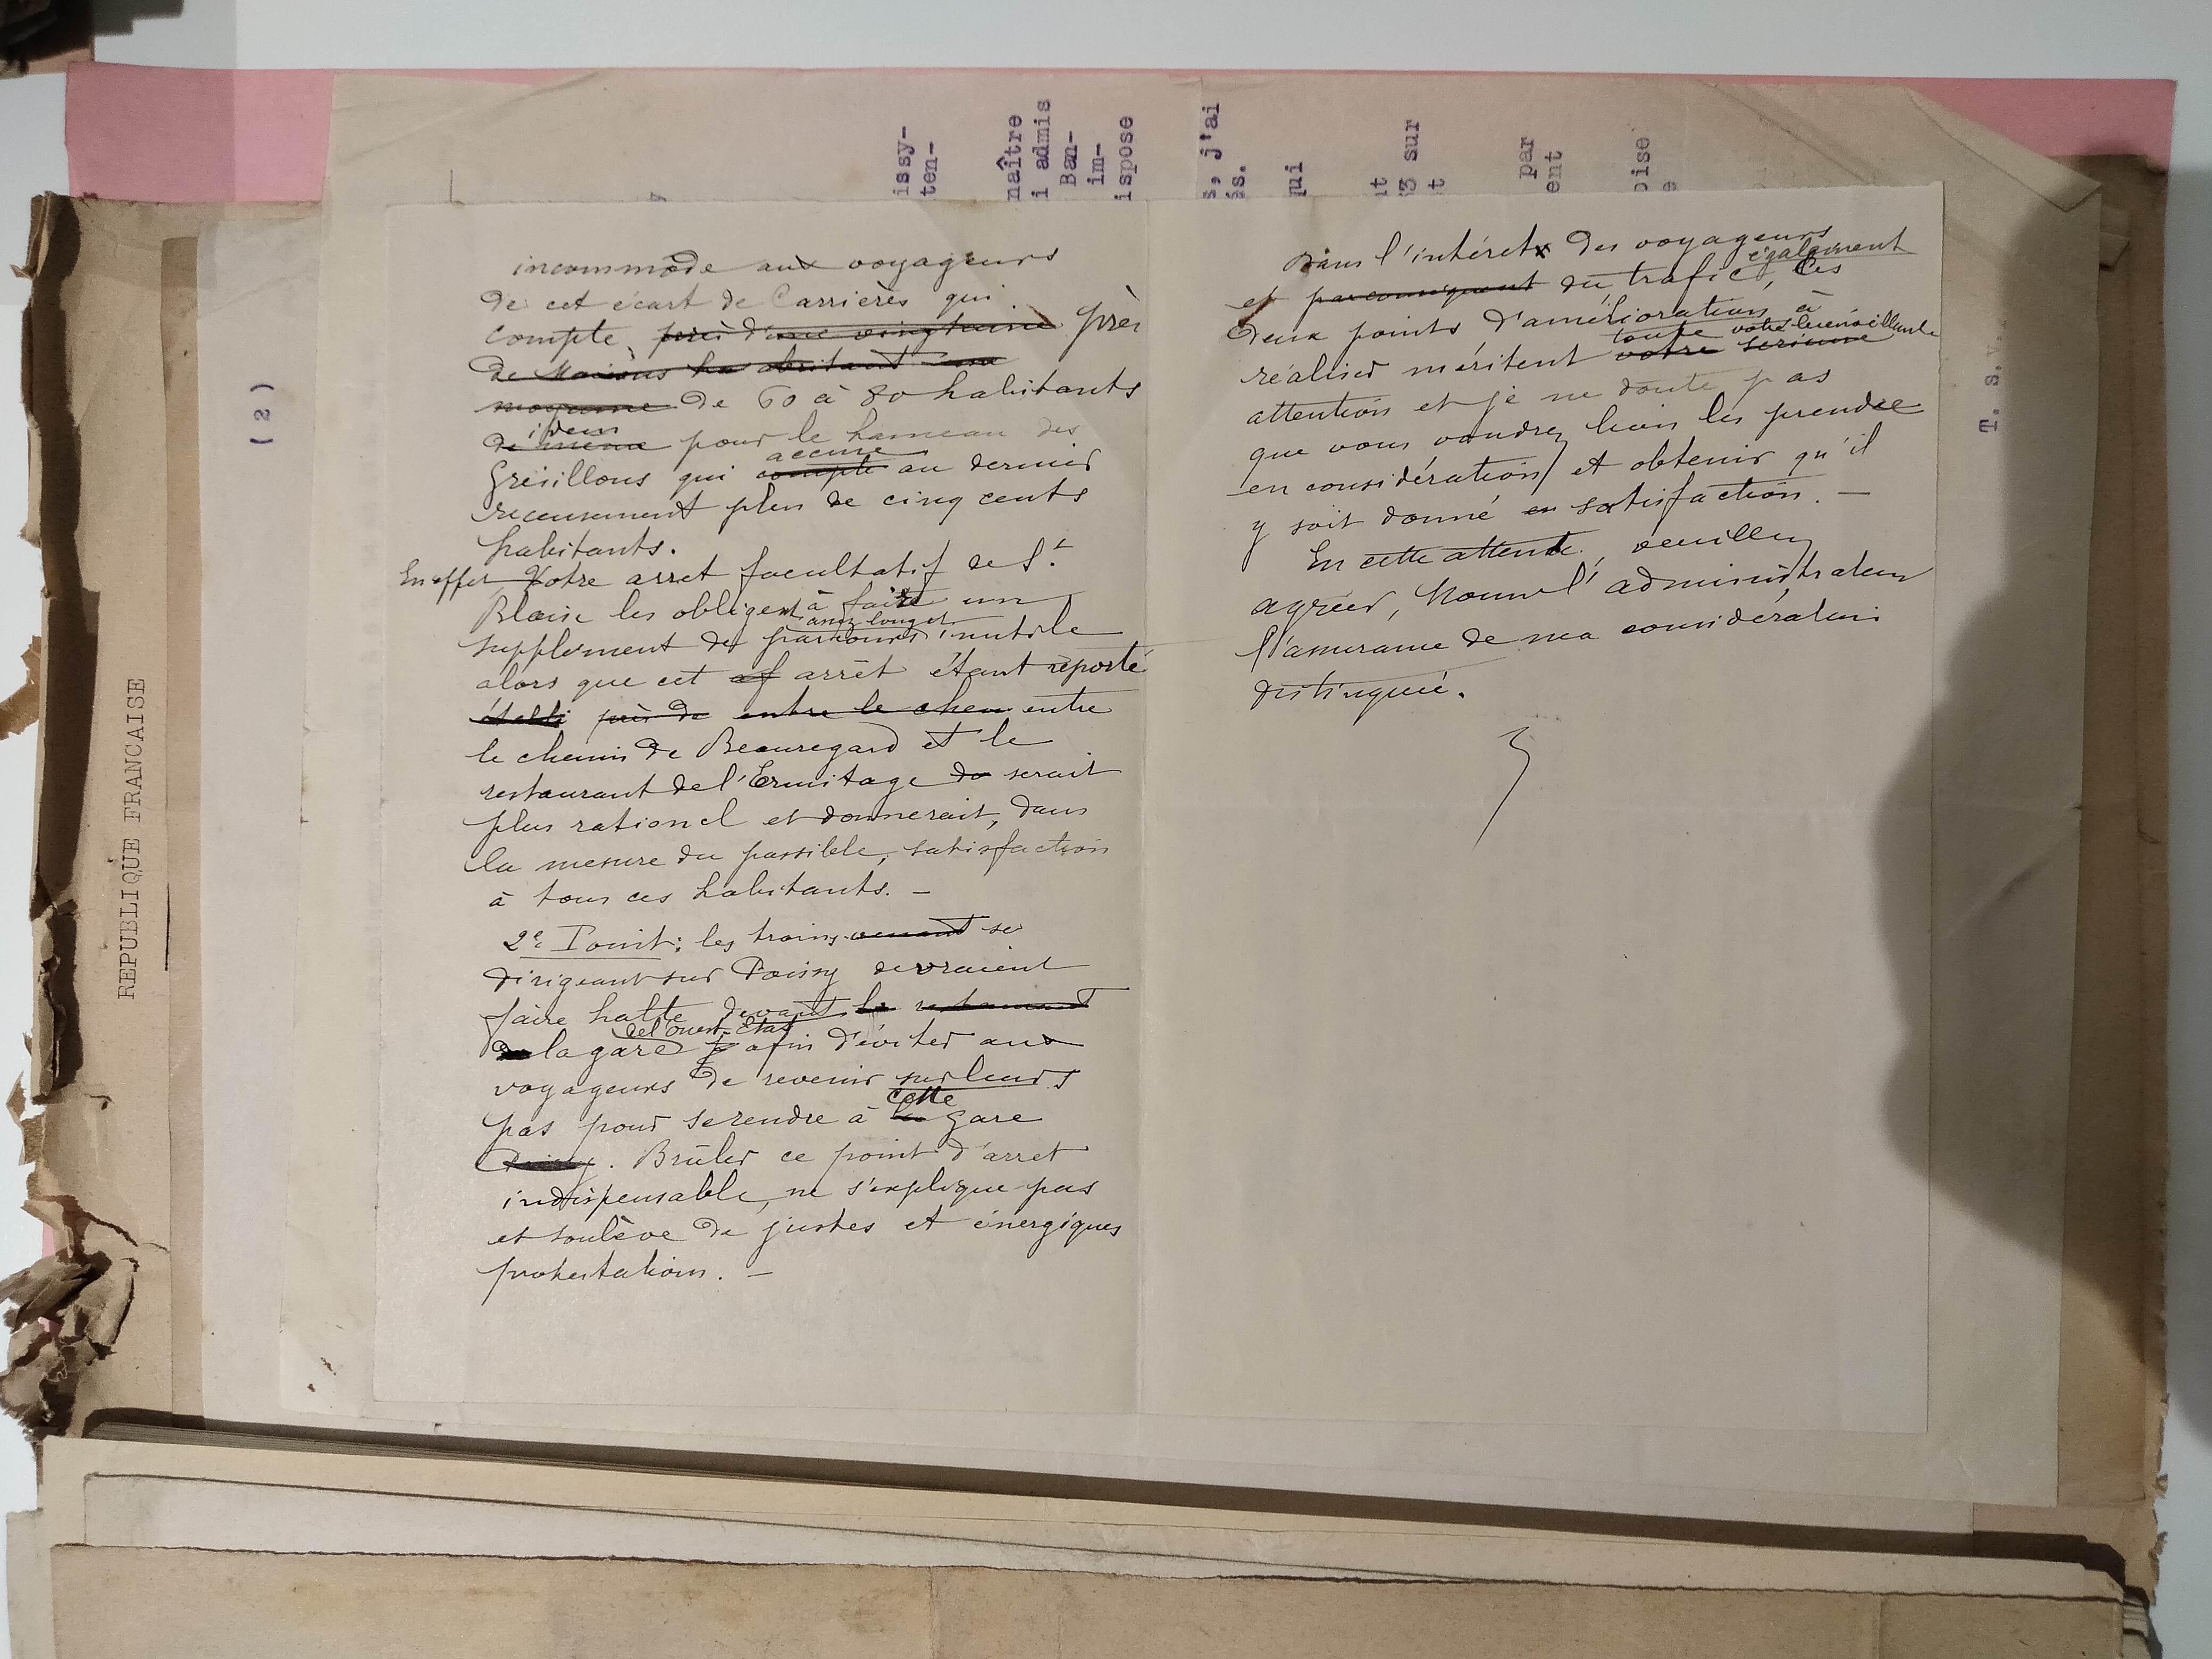 REPUBLIQUE FRANCAISE
(2)
issy-
ten-
naître
i admis
Ban-
im-
ispose
s, j'ai
és.
qui
nt
3 sur
t
par
ent
oise
e
T. S. V.
incommode aux voyageurs
de cet écart de Carrières qui
compte près d'une vingtaine près
de Maisons habritant une
moyenne de 60 à 80 habitants
idem
de même pour le hameau des
accuse
Grésillons qui compte au dernier
recensement plus de cinq cents
habitants.
En effet Votre arret facultatif de St
Blaise les obligent à faire un
assez long et
supplément de parcours inutile
alors que cet af arrêt étant reporté
établi près de entre le chem entre
le chemin de Beauregard et le
restaurant de l'Ermitage do serait
plus rationel et donnerait, dans
la mesure du possible, satisfaction
à tous ces habitants. -
2e Point: les trains venant se
dirigeant sur Poissy devraient
faire halte devant le restaurant
de l'ouest-Etat
de la gare afin d'éviter aux
voyageurs de revenir sur leurs
cette
pas pour se rendre à la gare
Poissy. Brûler ce point d'arret
indispensable, ne s'explique pas
et soulève de justes et énergiques
protestations. -
Dans l'intéret des voyageurs
également
et par conséquent du trafic, ces
deux points d'amélioration à
toute votre bienveillante
réaliser méritent votre serieuse
attention et je ne doute pas
que vous voudrez bien les prendre
en considération et obtenir qu'il
y soit donné en satisfaction. -
En cette attente, veuillez
agréer, Monsr l'administrateur
l'assurance de ma considération
distinguée.